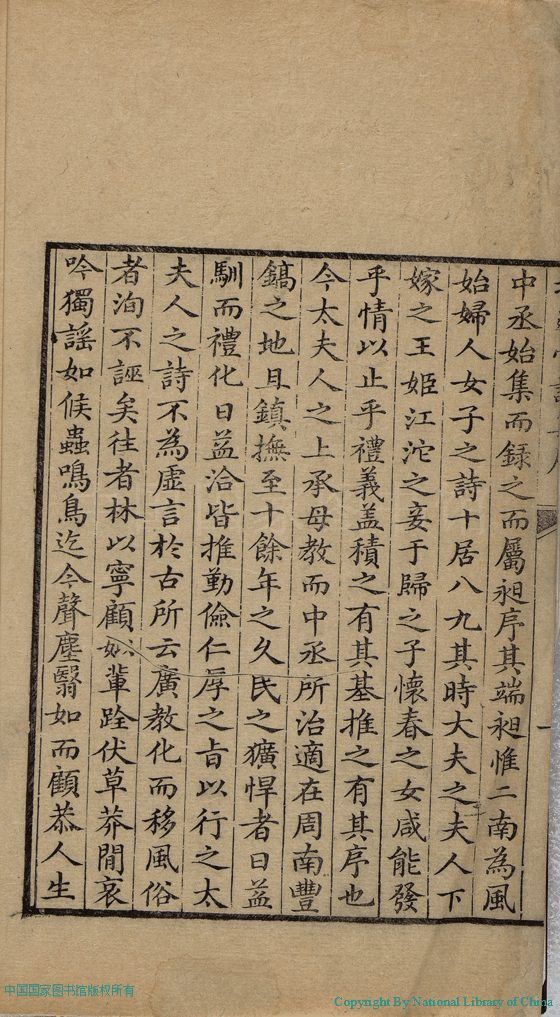 中丞始集而録之而屬昶序其端昶惟二南為風
始婦人女子之詩十居八九其時大夫之夫人下
嫁之王姬江沱之妾于歸之子懷春之女咸能發
乎情以止乎禮義盖積之有其基推之有其序也
今太夫人之上承母教而中丞所治適在周南豐
鎬之地且鎮撫至十餘年之久民之獷悍者日益
馴而禮化日益洽皆推勤儉仁厚之旨以行之太
夫人之詩不為虛言於古所云廣教化而移風俗
者洵不誣矣往者林以寧顧姒輩跧伏草莽閒哀
吟獨謡如候蟲鳴鳥迄今聲塵翳如而顧恭人生
中国国家图书馆版权所有
Copyright By National Library of China